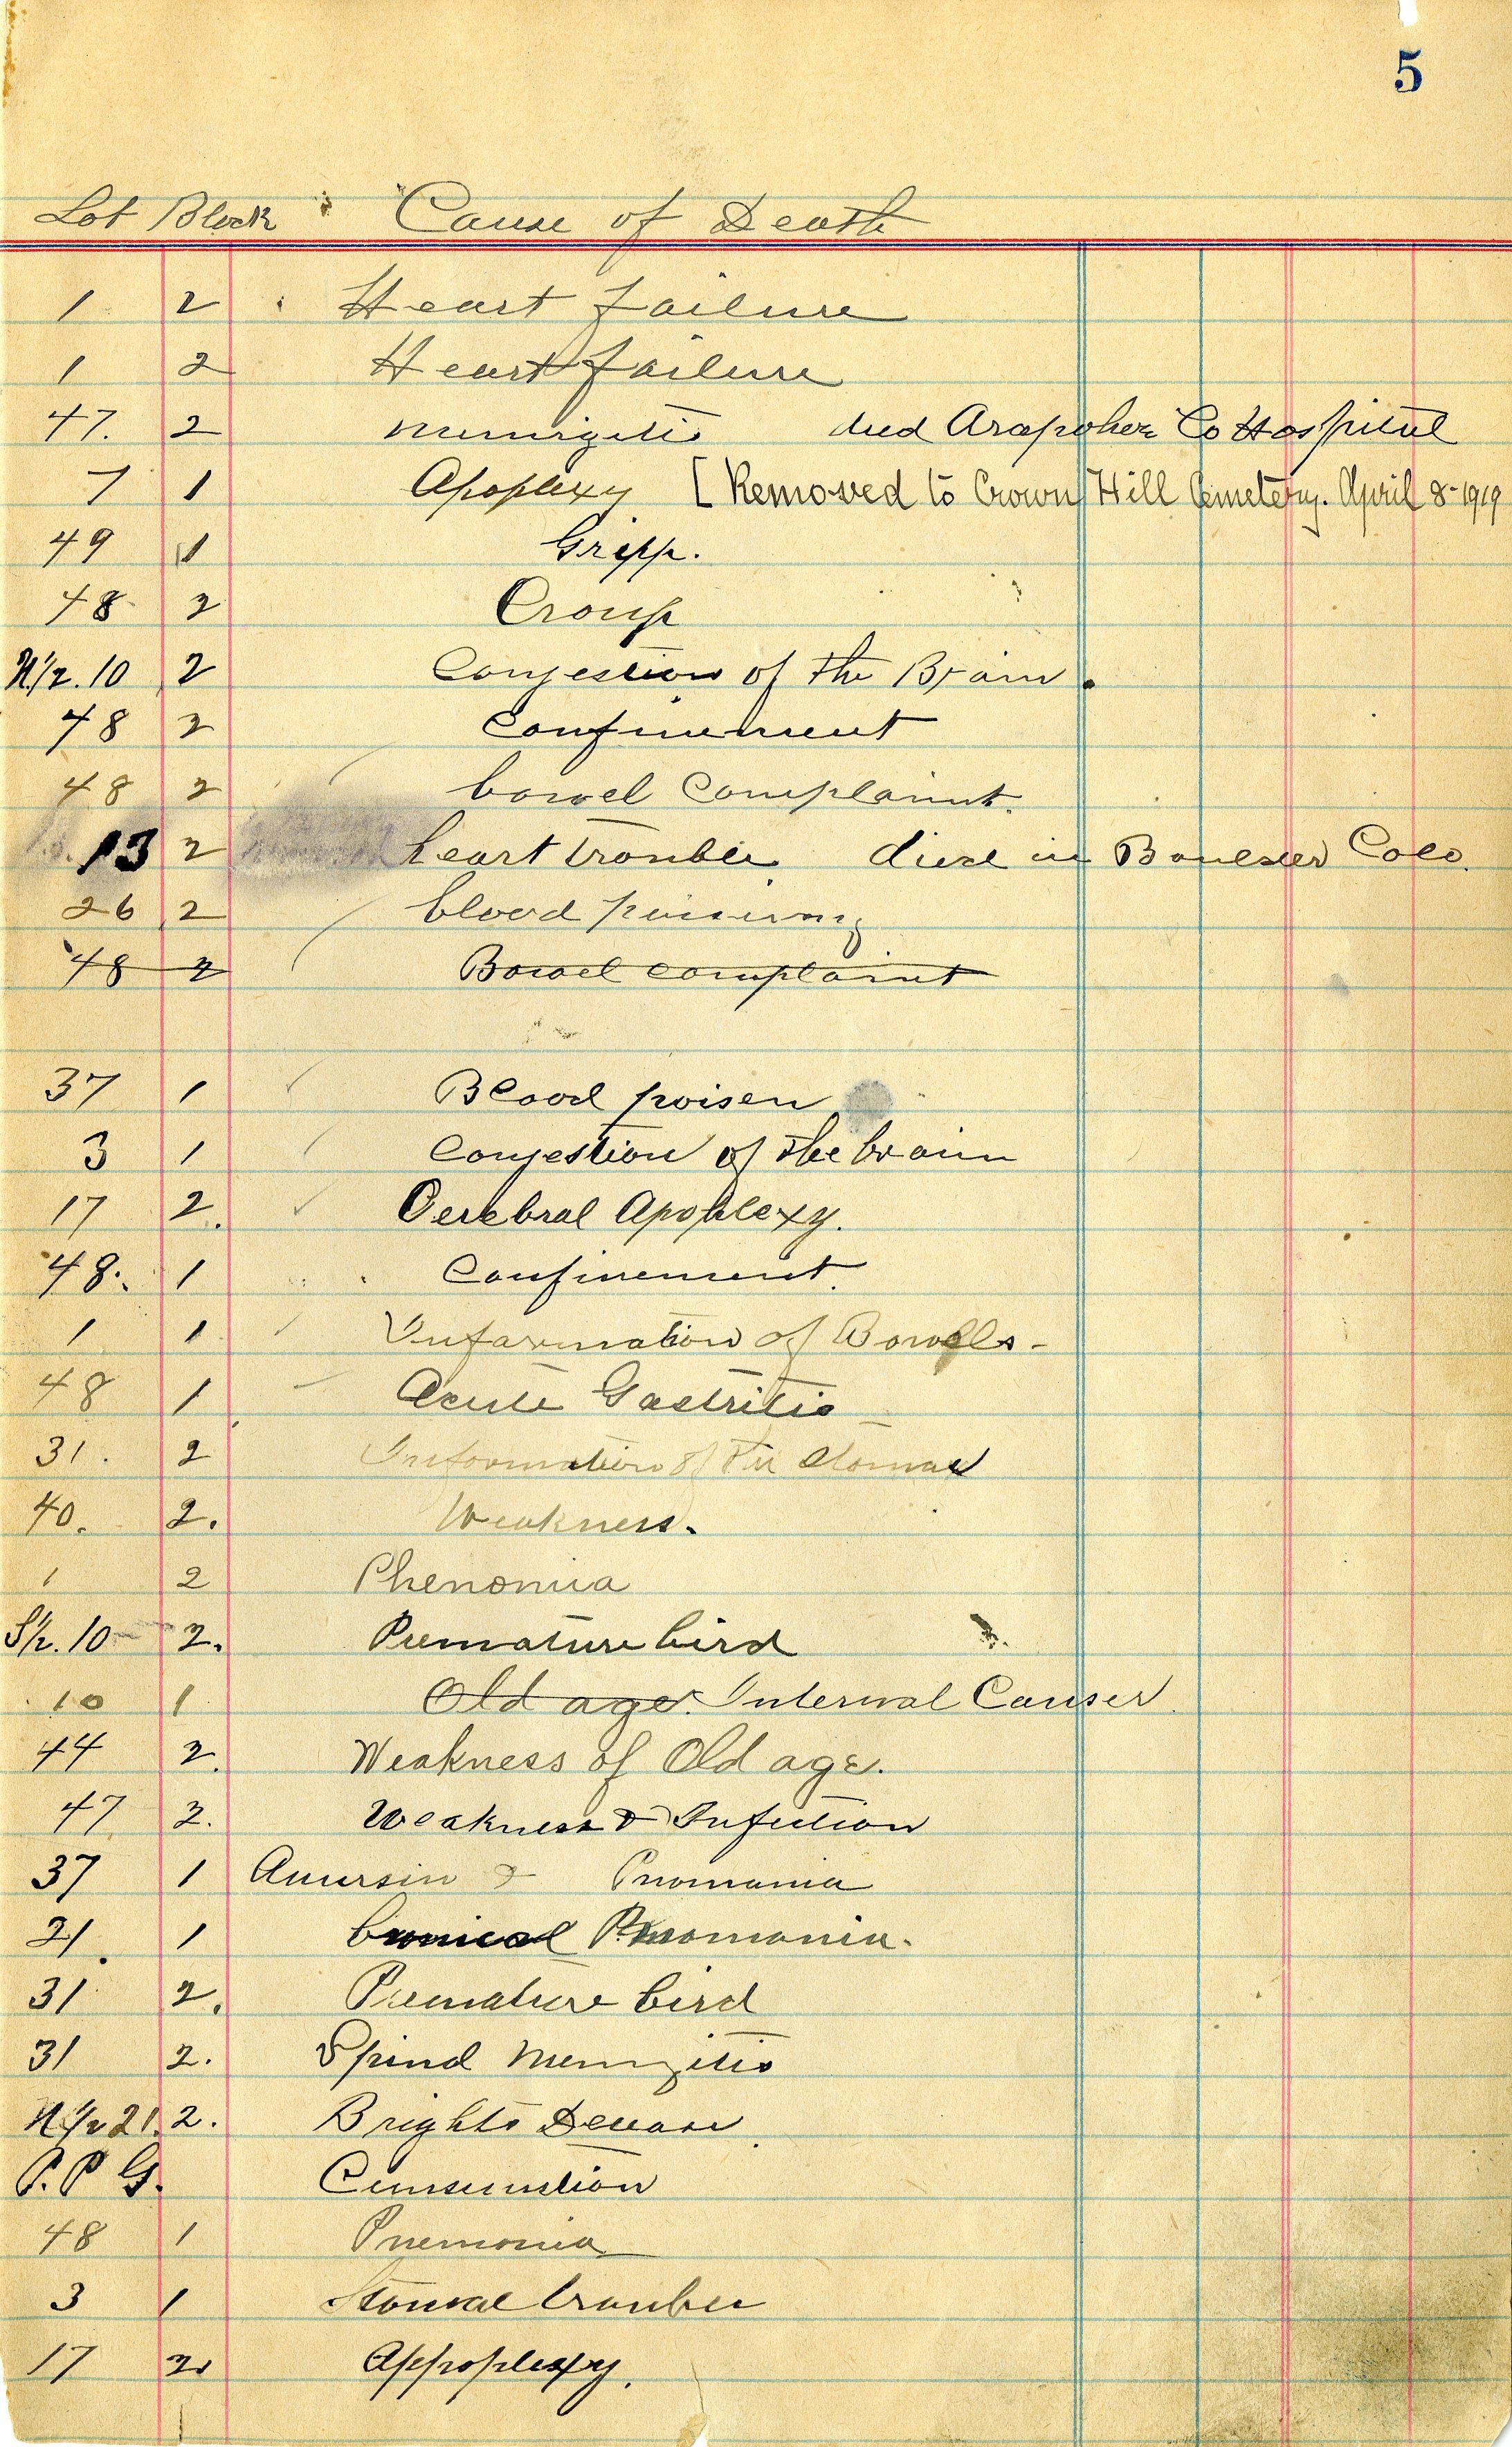 5
Lot Block Cause of Death
1 2 Heart failure
1 2 Heart failure
47. 2 died Arapohoe Co Hospital
7 1 Apoplexy [Removed to Crown Hill Cemetery. April 8-1919
49 1 Gripp.
48 2 Croup
N 1/2. 10 2 Congestion of the Brain.
48 2 Confinement
48 2 bowel Complainnt.
13 2 heart trouble died in Colo.
26 2 blood
48 2 Bowel complaint
37 1 Blood poisen
3 1 Congestion of the brain
17 2. Cerebral Apoplexy.
48. 1 Confinement.
1 1 Infarmation of Bowells-
48 1 Acute Gastritis
31. 2 Information of the
40. 2. Weakness.
1 2 Phenomia
S 1/2. 10 2. Premature bird
10 1 Old age. Internal Causes
44 2. Weakness of Old age.
47 2. Weakness & Infection
37 1 & Pnomania
21. 1 Pnomonia.
31 2. Premature bird
31 2. Spind
N 1/2 21. 2. Brights
P. P G.
48 1 Pnemonia
3 1
17 2 Appoplexy.